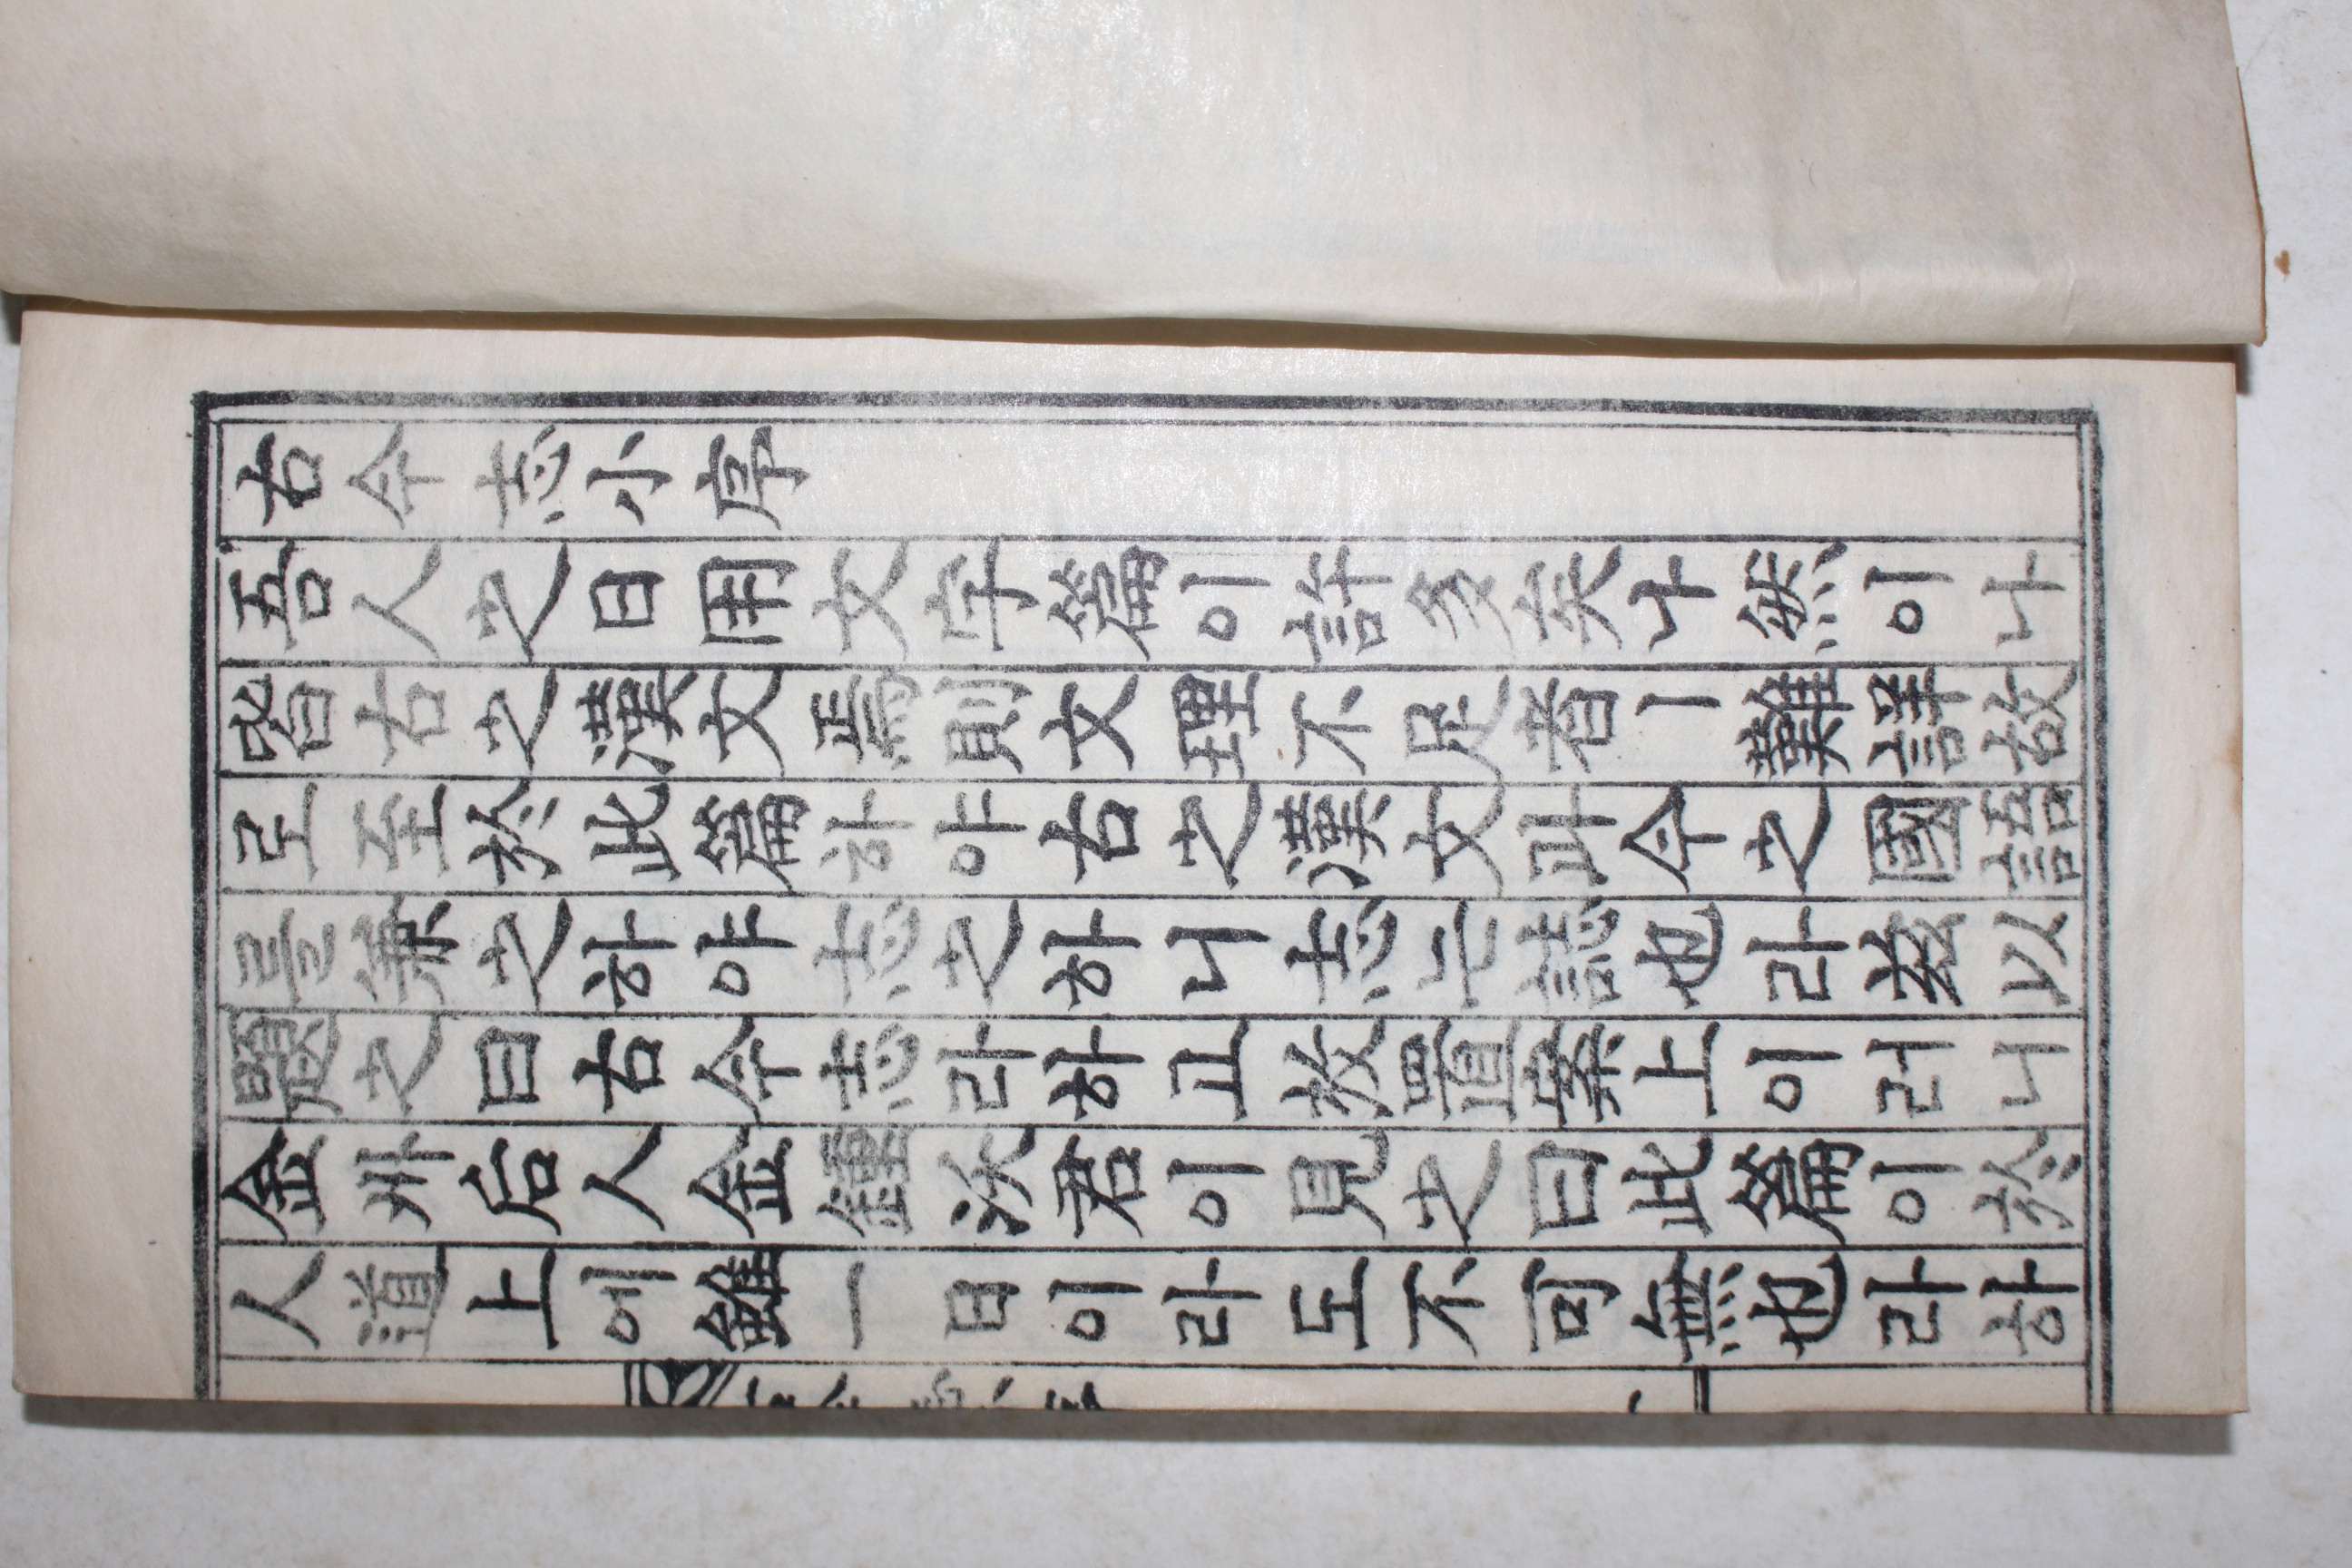 古今志小序
吾人之日用文字篇이許多矣나然이나
咎古之漢文焉則文理不足者ㅣ難譯故
로至於此篇하야古之漢文과今之國語
를兼之하야志之하니志는誌也라玆以
題之曰古今志라하고放置案上이러니
金州后人金鍾洙君이見之曰此篇이於
人道上에雖一日이라도不可無也라하